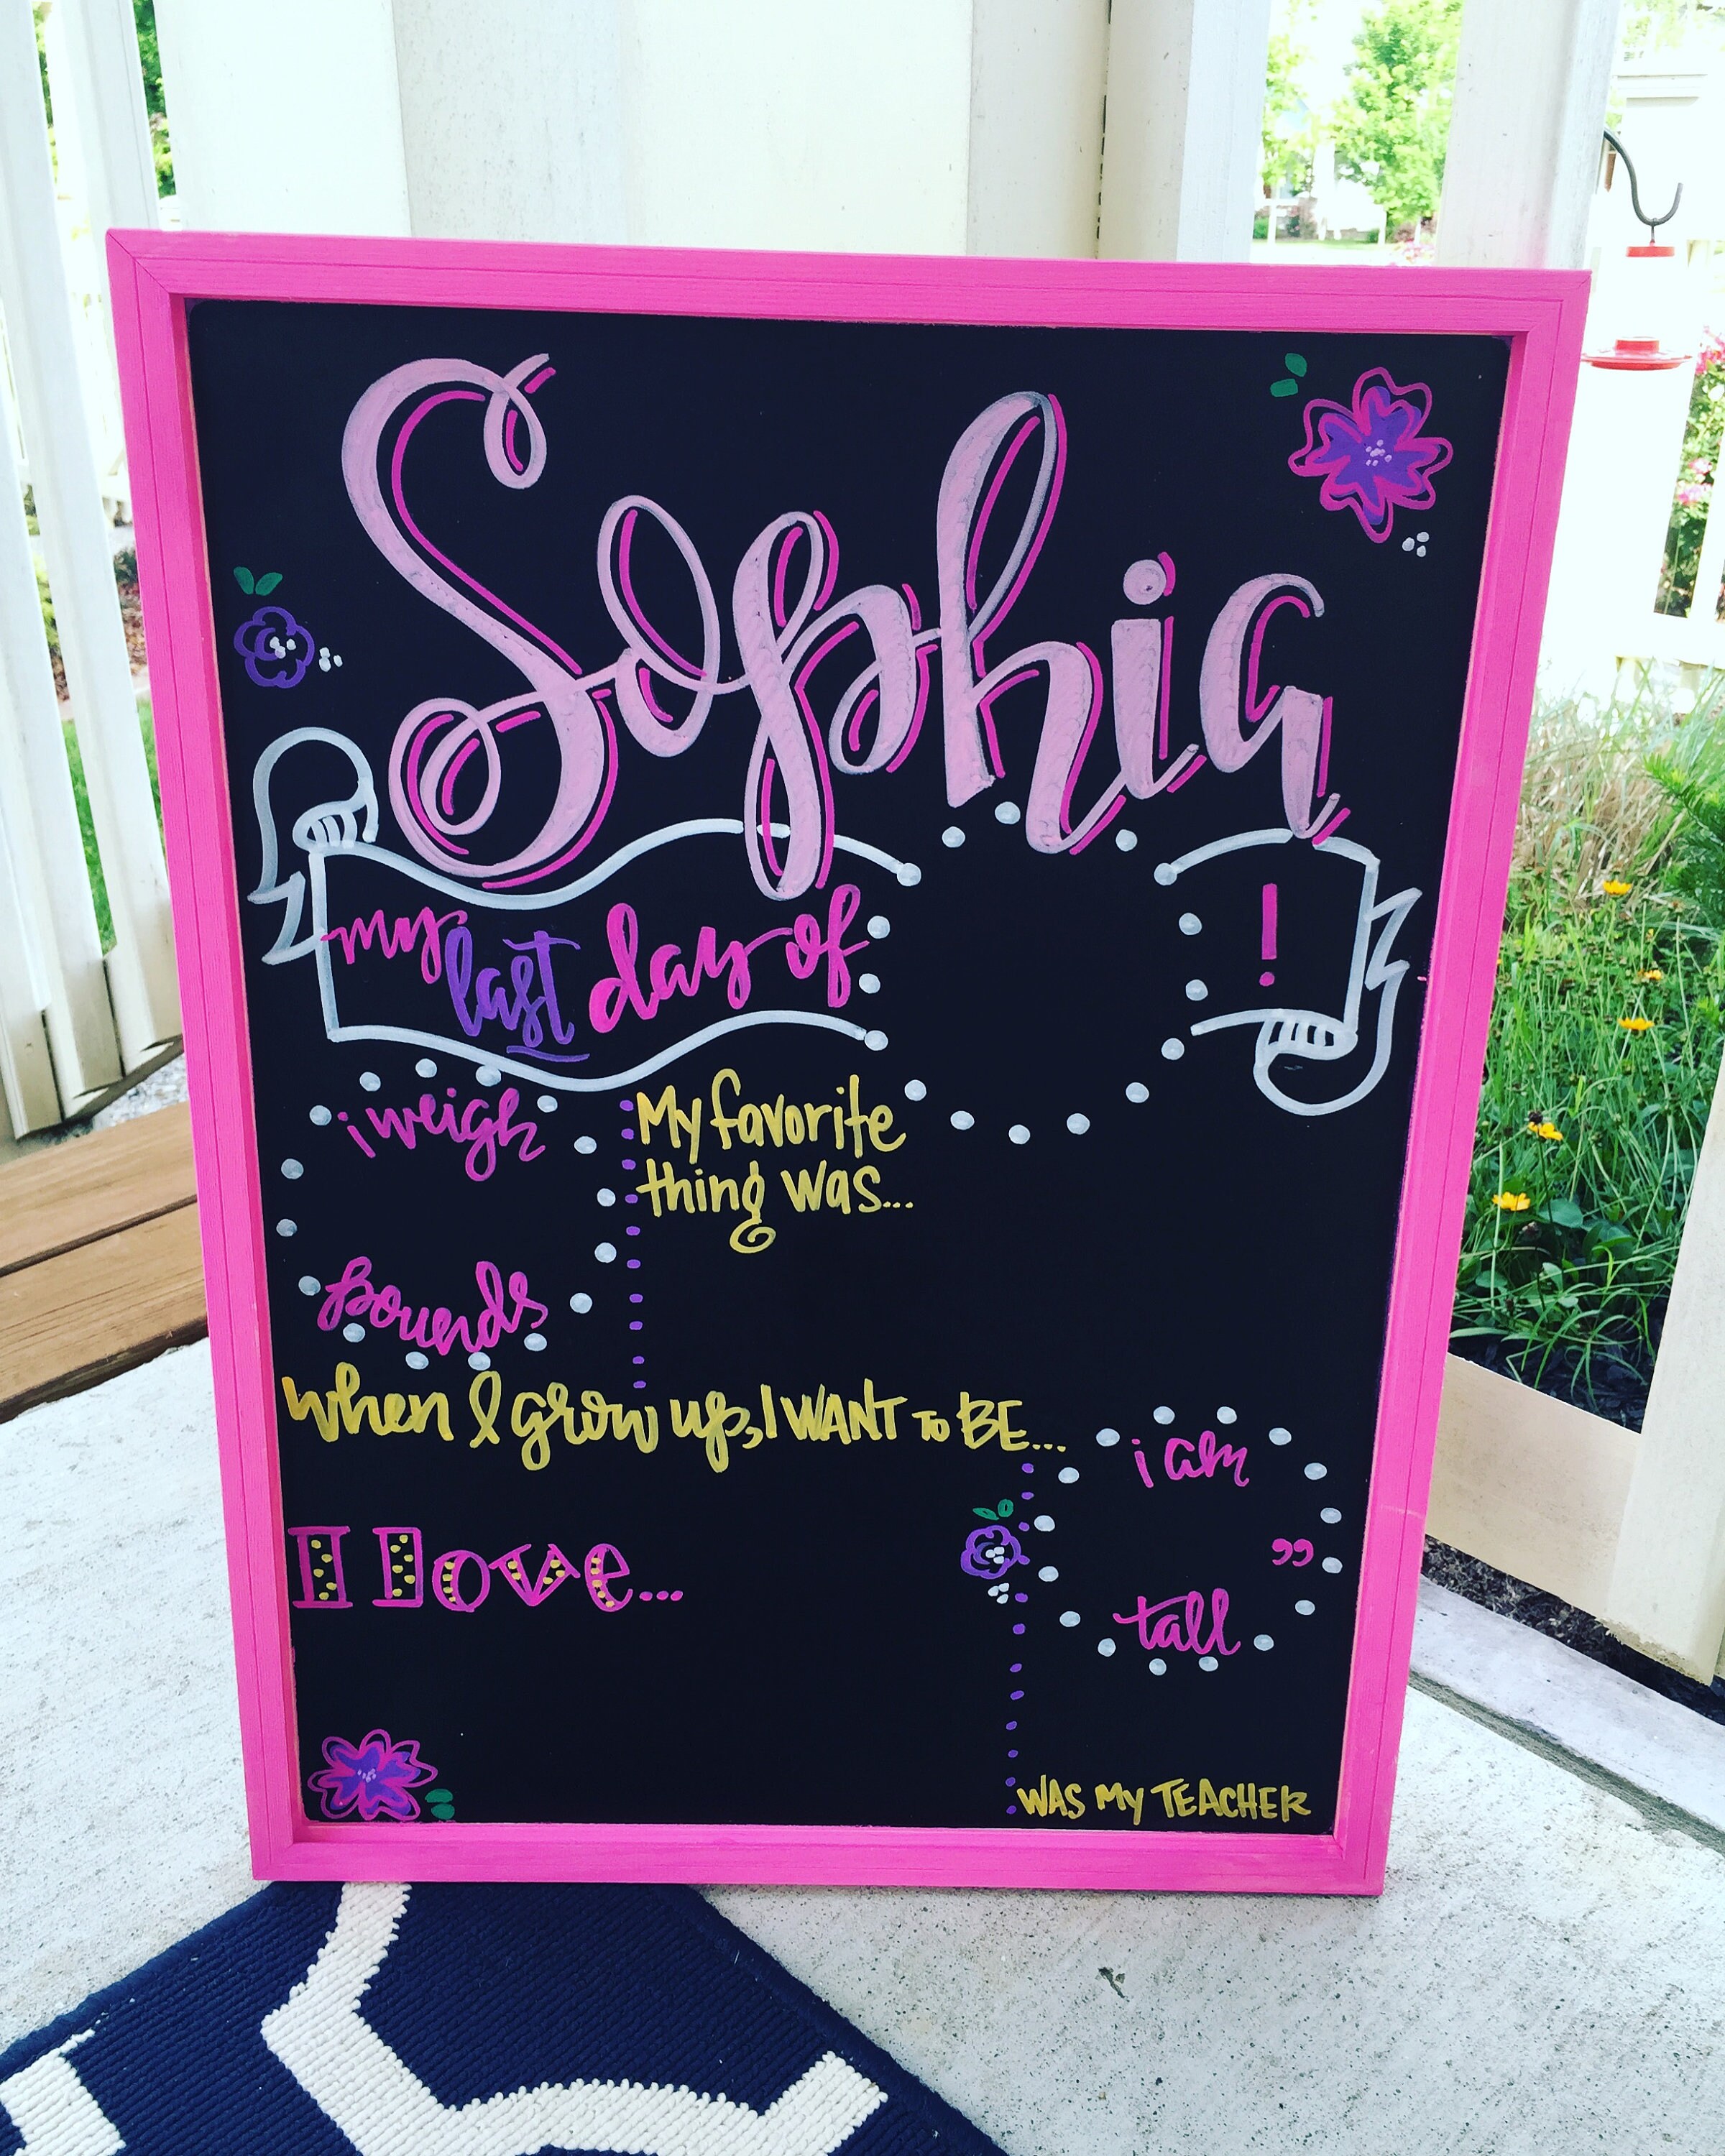 Sophia
my last day of !
i weigh
pounds
My favorite
thing was...
When I grow up, I WANT TO BE...
i am
”
tall
I love...
WAS MY TEACHER